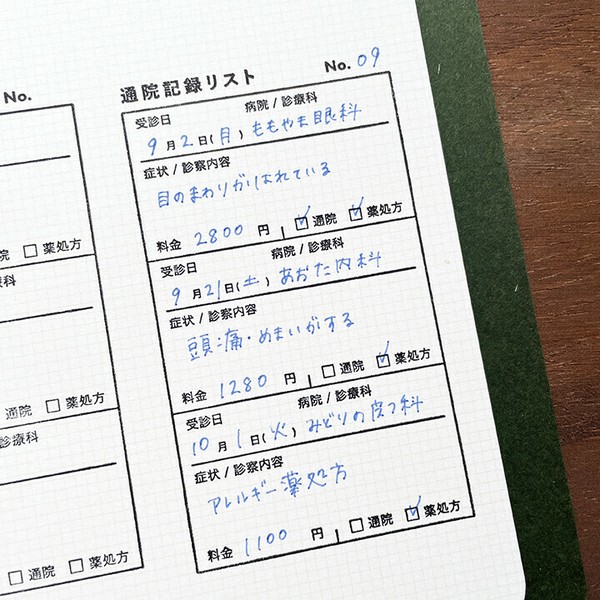 No.
院 □ 薬処方
科
通院 □ 薬処方
診療科
□ 通院 □ 薬処方
通院記録リスト No. 09
受診日 病院 / 診療科
9月2日(月) ももやま眼科
症状 / 診察内容
目のまわりがはれている
料金 2800 円 | ☑ 通院 ☑ 薬処方
受診日 病院 / 診療科
9月21日(土) あおた内科
症状 / 診察内容
頭痛・めまいがする
料金 1280 円 | □ 通院 ☑ 薬処方
受診日 病院 / 診療科
10月1日(火) みどりの
症状 / 診察内容
アレルギー薬処方
料金 1100 円 | □ 通院 ☑ 薬処方